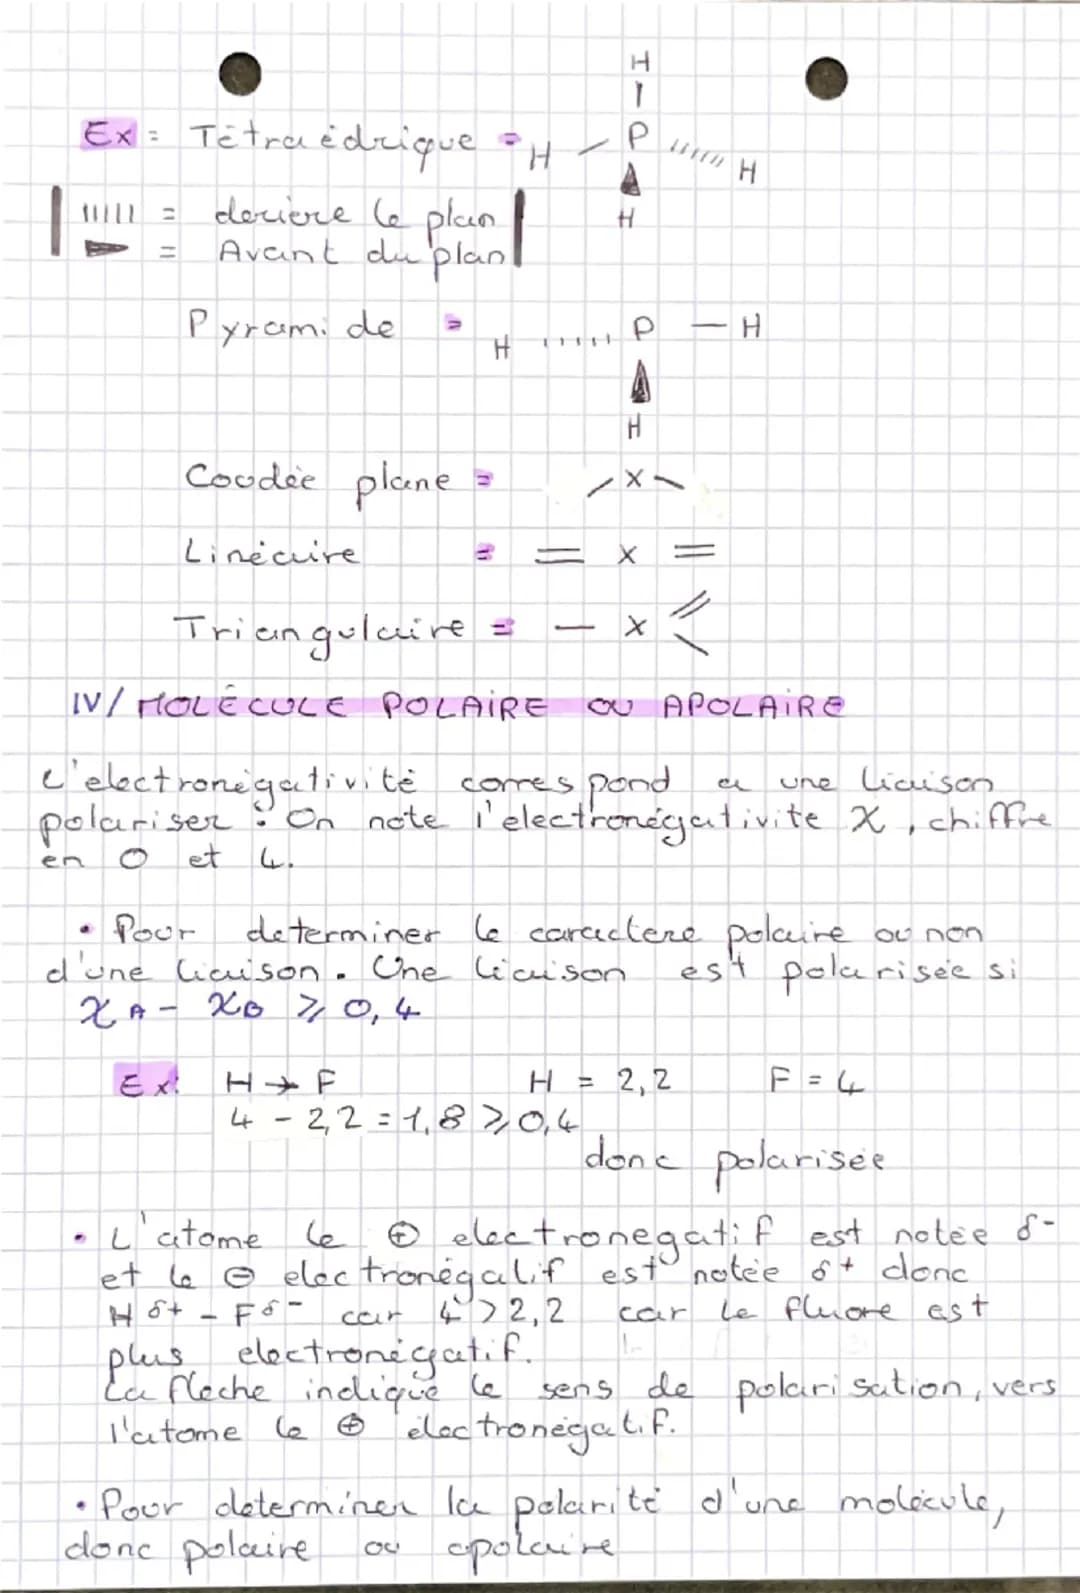 H
Ex = Tétraédrique = H - P ''''' H
H
ıııııı = deriere le plan
= Avant du plan
Pyramide = H ..... P — H
H
Coudée plane = / X \
Linéaire = = X =
Triangulaire = — X
IV/ MOLÉCULE POLAIRE OU APOLAIRE
L'electronégativité correspond a une liaison
polariser : On note l'electronégativite χ, chiffre
en 0 et 4.
• Pour determiner le caractere polaire ou non
d'une liaison. Une liaison est polarisée si
χA - χB ⩾ 0,4
Ex: H → F H = 2,2 F = 4
4 - 2,2 = 1,8 ⩾ 0,4
donc polarisée
• L'atome le ⊕ electronegatif est notée δ-
et le ⊖ electronégatif est notée δ+ donc
H δ+ - F δ- car 4 > 2,2 car le fluore est
plus electronégatif.
La fleche indique le sens de polarisation, vers
l'atome le ⊕ électronégatif.
• Pour determiner la polarité d'une molécule,
donc polaire ou apolaire